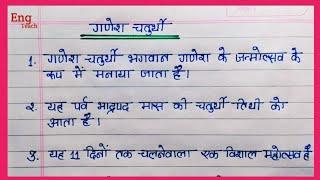 Eng
Teach
गणेश चतुर्थी
1. गणेश चतुर्थी भगवान गणेश के जन्मोत्सव के
रूप में मनाया जाता है।
२. यह पर्व भाद्रपद मास की चतुर्थी तिथी को
आता है।
3. यह 11 दिनों तक चलनेवाला एक विशाल महोत्सव है